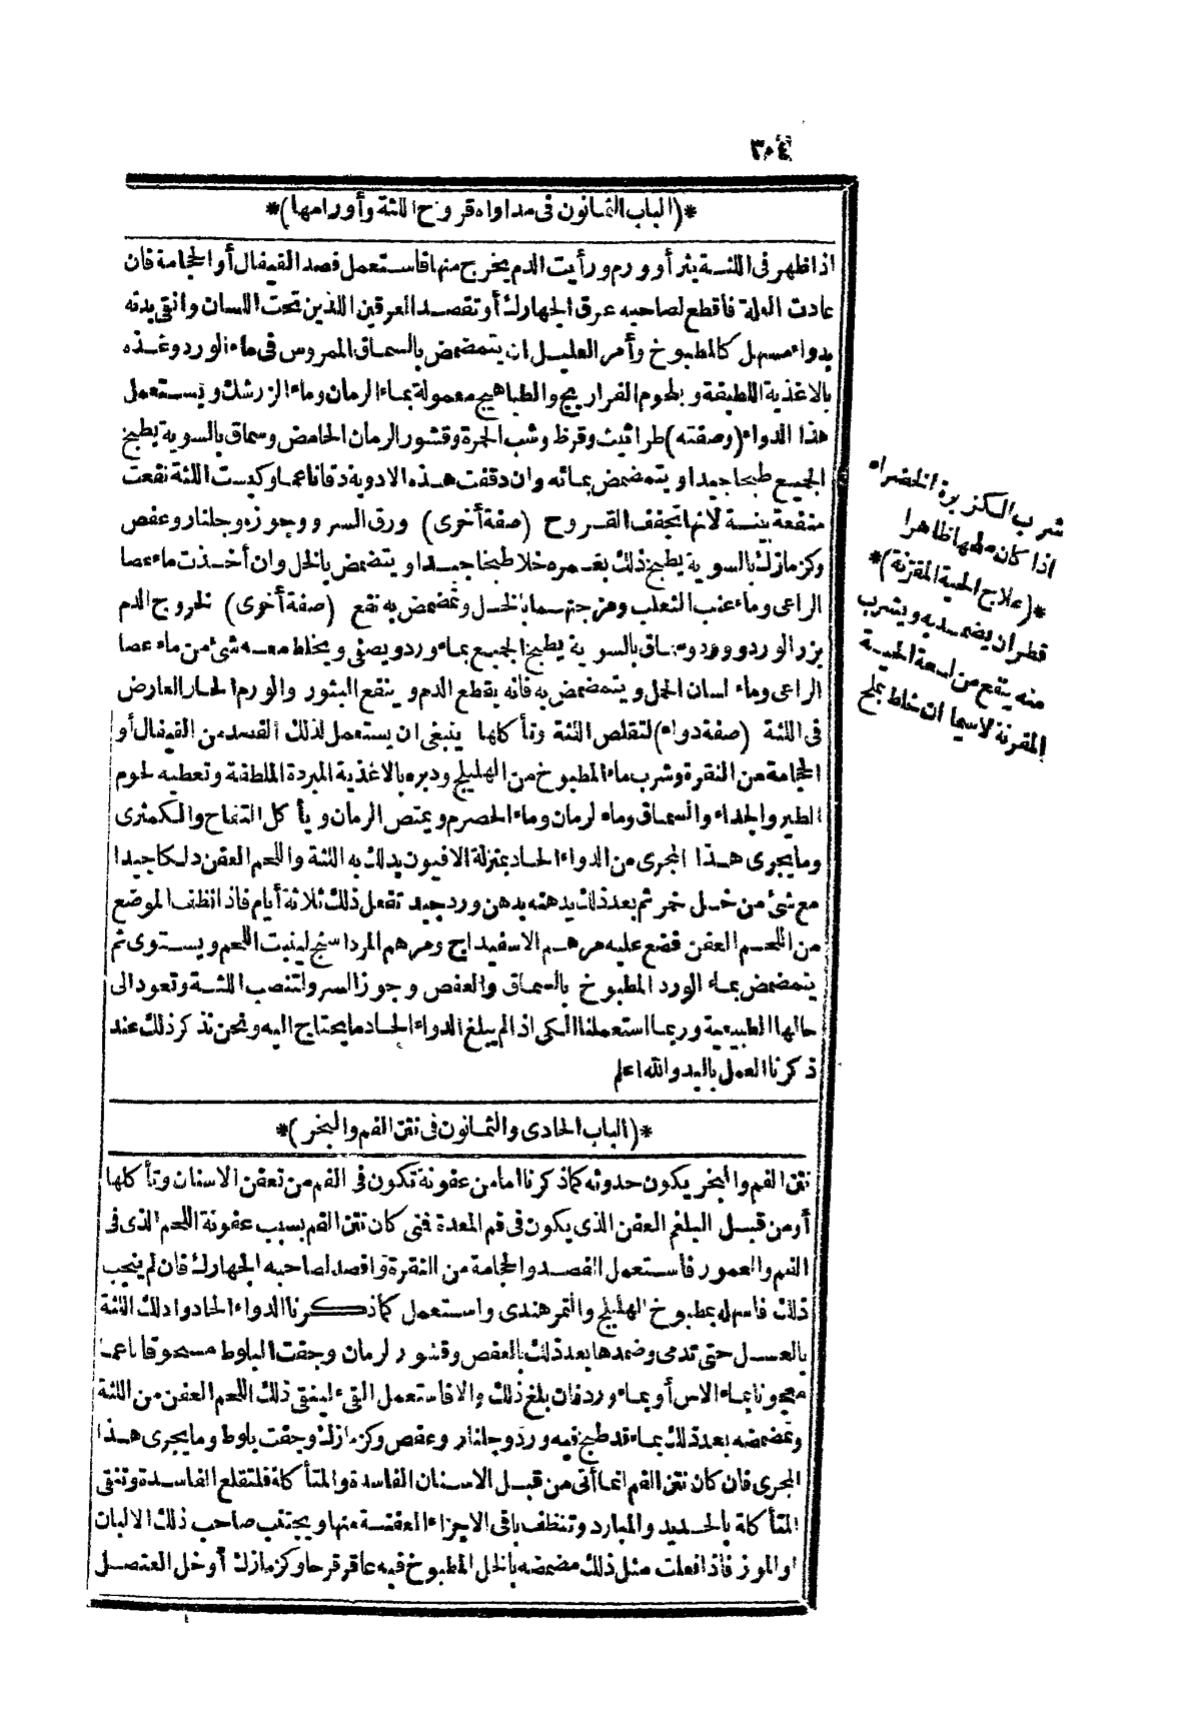 ٣٠٤
*(الباب الثمانون فى مداواة قروح اللثة وأورامها)*
اذا ظهر فى اللثة بثر أو ورم ورأيت الدم يخرج منها فاستعمل فصد القيفال أو الحجامة فان
عادت العلة فاقطع لصاحبه عرق الجهارك أو تفصد العرقين اللذين تحت اللسان وانق بدنه
بدواء مسهل كالمطبوخ وأمر العليل ان يتمضمض بالسماق الممروس فى ماء الورد وغذه
بالاغذية اللطيفة وبلحوم الفراريج والطباهيج معمولة بماء الرمان وماء الزرشك ويستعمل
هذا الدواء (وصفته) طراثيث وقرظ وشب الحمرة وقشور الرمان الحامض وسماق بالسوية يطبخ
الجميع طبخا جيدا ويتمضمض بمائه وان دققت هذه الادوية دقا ناعما وكبست اللثة نفعت
منفعة بينة لانها تجفف القروح (صفة أخرى) ورق السرو وجوزه وجلنار وعفص
وكزمازك بالسوية يطبخ ذلك بغمره خلا طبخا جيدا ويتمضمض بالخل وان أخذت ماء عصا
الراعى وماء عنب الثعلب ومزجتهما بالخل وتمضمض به نفع (صفة أخرى) لخروج الدم
بزر الورد وورد وسماق بالسوية يطبخ الجميع بماء ورد ويصفى ويخلط معه شئ من ماء عصا
الراعى وماء لسان الحمل ويتمضمض به فانه يقطع الدم وينفع البثور والورم الحار العارض
فى اللثة (صفة دواء) لتقلص اللثة وتأكلها ينبغى ان يستعمل لذلك الفصد من القيفال أو
الحجامة من النقرة وشرب ماء المطبوخ من الهليلج ودبره بالاغذية المبردة الملطفة وتعطيه لحوم
الطير والجداء والسماق وماء لرمان وماء الحصرم ويمتص الرمان ويأكل التفاح والكمثرى
وما يجرى هذا المجرى من الدواء الحاد بمنزلة الافيون يدلك به اللثة واللحم العفن دلكا جيدا
مع شئ من خل خمر ثم بعد ذلك يدهنه بدهن ورد جيد تفعل ذلك ثلاثة أيام فاذا نظف الموضع
من اللحم العفن فضع عليه مرهم الاسفيداج ومرهم المرداسنج لينبت اللحم ويستوى ثم
يتمضمض بماء الورد المطبوخ بالسماق والعفص وجوز السرو لتنصب اللثة وتعود الى
حالها الطبيعية وربما استعملنا الكى اذا لم يبلغ الدواء الحاد ما يحتاج اليه ونحن نذكر ذلك عند
ذكرنا العمل باليد والله اعلم
*(الباب الحادى والثمانون فى نتن الفم والبخر)*
نتن الفم والبخر يكون حدوثه كما ذكرنا اما من عفونة تكون فى الفم من تعفن الاسنان وتأكلها
أو من قبل البلغم العفن الذى يكون فى فم المعدة فمتى كان نتن الفم بسبب عفونة اللحم الذى فى
الفم والعمور فاستعمل الفصد والحجامة من النقرة وافصد لصاحبه الجهارك فان لم ينجب
ذلك فاسهله بمطبوخ الهليلج والتمر هندى واستعمل كما ذكرنا الدواء الحاد وادلك اللثة
بالعسل حتى تدمى وضمدها بعد ذلك بالعفص وقشور لرمان وجفت البلوط مسحوقا ناعما
معجونا بماء الاس أو بماء ورد فان بلغ ذلك والا فاستعمل القىء لينقى ذلك اللحم العفن من اللثة
وتمضمضه بعد ذلك بماء قد طبخ فيه ورد وجلنار وعفص وكزمازك وجفت بلوط وما يجرى هذا
المجرى فان كان نتن الفم انما أتى من قبل الاسنان الفاسدة والمتأكلة فلتقلع الفاسدة وتنقى
المتأكلة بالحديد والمبارد وتنظف باقى الاجزاء العفنة منها ويجتنب صاحب ذلك الالبان
والموز فاذا فعلت مثل ذلك مضمضه بالخل المطبوخ فيه عاقر قرحا وكزمازك أو خل العنصل
شرب الكزبرة الخضراء
اذا كان طهاظاهرا
*(علاج الحية المقرنة)*
قطران يضمد به ويشرب
منه ينفع من لسعة الحية
المقرنة لاسيما ان خلط بملح